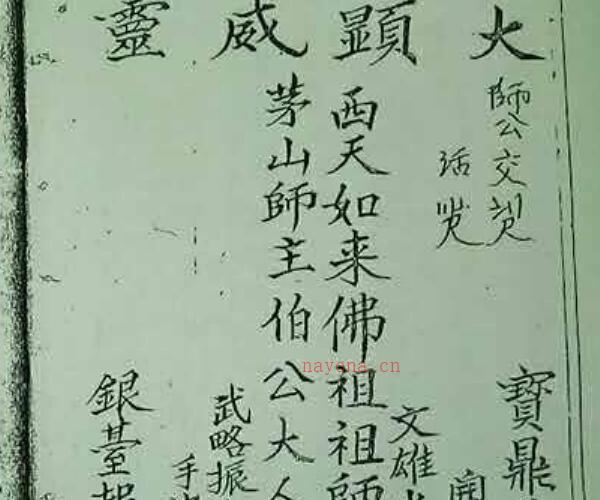 大顯威靈
師公交
活
寶鼎
文雄
西天如来佛祖祖師
茅山師主伯公大人
武略振
手
銀臺報
nayona.cn